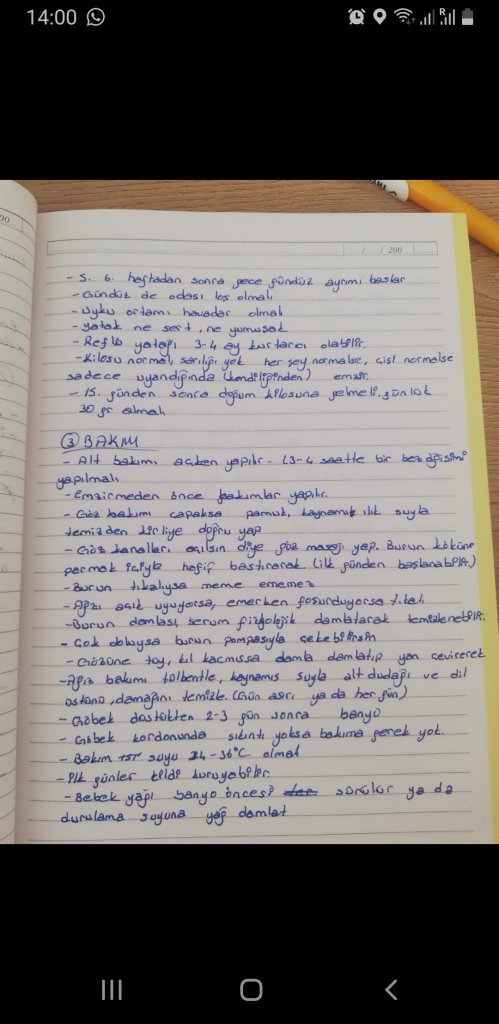 14:00
R
00
/ / 200
- 5. 6. haftadan sonra gece gündüz ayrımı başlar
- Gündüz de odası loş olmalı
- Uyku ortamı havadar olmalı
- yatak ne sert, ne yumuşak
- Reflü yatağı 3-4 ay kurtarıcı olabilir.
- Kilosu normal, sarılığı yok her şey normalse, çişi normalse
sadece uyandığında (kendiliğinden) emzir.
- 15. günden sonra doğum kilosuna gelmeli, günlük
30 gr almalı
③ BAKIM
- Alt bakımı açken yapılır - (3-4 saatte bir bez değişimi
yapılmalı
- Emzirmeden önce bakımlar yapılır.
- Göz bakım çapaksa pamuk, kaynamış ılık suyla
temizden kirliye doğru yap
- Göz kanalları açılsın diye göz masajı yap. Burun köküne
parmak içiyle hafif bastırarak (ilk günden başlanabilir)
- Burun tıkalıysa meme ememez
- Ağzı açık uyuyorsa, emerken fosurduyorsa tıkalı
- Burun damlası, serum fizyolojik damlatarak temizlenebilir.
- Çok doluysa burun pompasıyla çekebilirsin
- Gözüne toy, kıl kaçmışsa damla damlatıp yan çevirerek
- Ağız bakımı tülbentle, kaynamış suyla alt dudağı ve dil
üstünü, damağını temizle. (Gün aşırı ya da her gün)
- Göbek düştükten 2-3 gün sonra banyo
- Göbek kordonunda sıkıntı yoksa bakıma gerek yok.
- Bakım suyu 34-36°C olmalı
- İlk günler cildi kuruyabilir.
- Bebek yağı banyo öncesi sürülür ya da
durulama suyuna yağ damlat